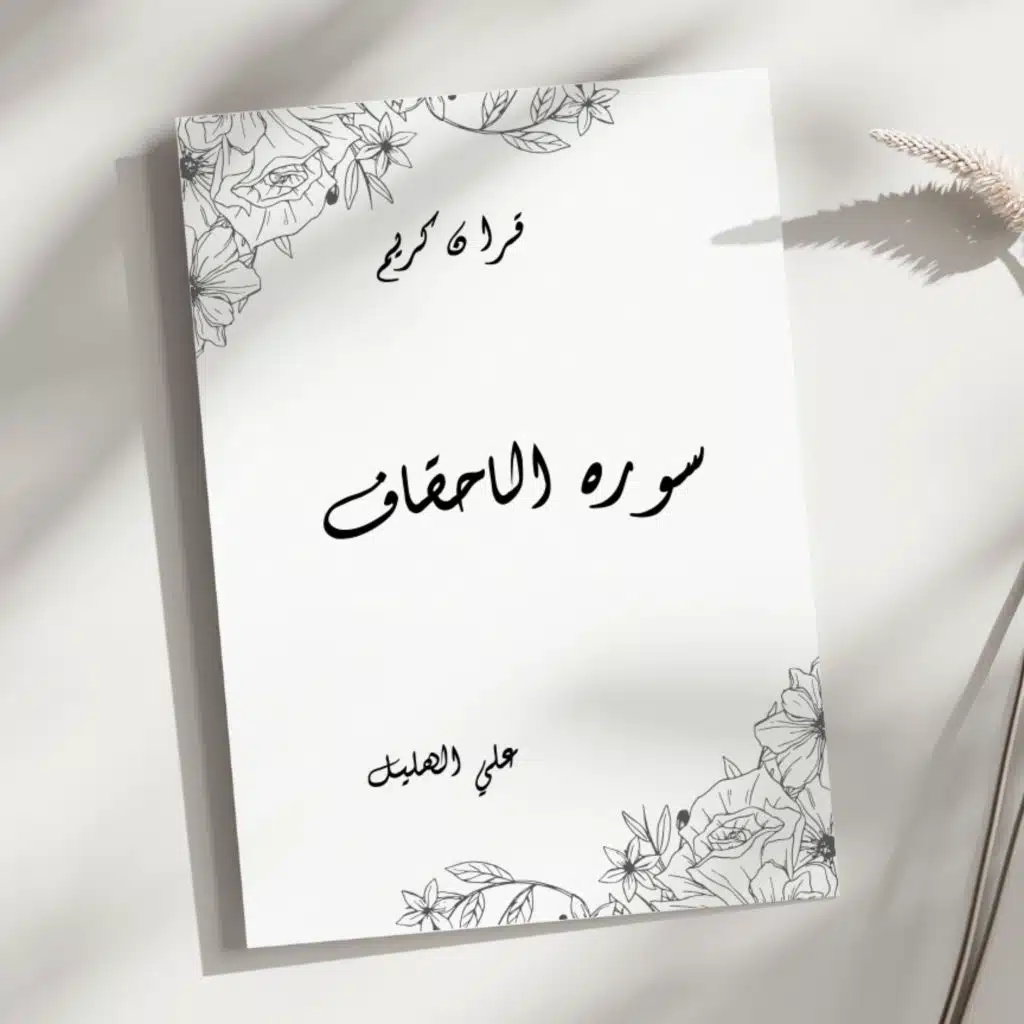 قران كريم
سوره الاحقاف
علي الهليل